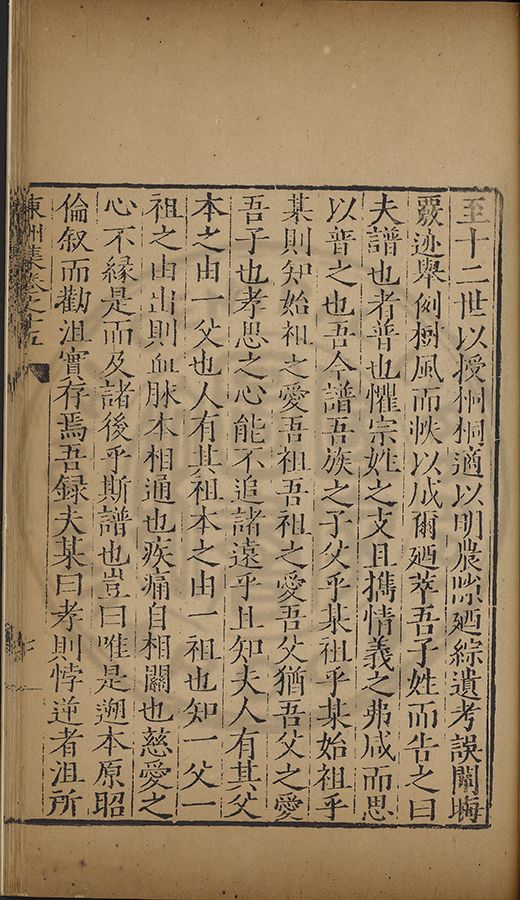 至十二世以授適以明農隙廼綜遺考誤闡晦
覈迹舉例樹風而帙以成爾廼萃吾子姓而告之曰
夫譜也者普也懼宗姓之支且攜情義之弗咸而思
以普之也吾今譜吾族之子父乎某祖乎某始祖乎
某則知始祖之愛吾祖吾祖之愛吾父猶吾父之愛
吾子也孝思之心能不追諸遠乎且知夫人有其父
本之由一父也人有其祖本之由一祖也知一父一
祖之由出則血脉本相通也疾痛自相關也慈愛之
心不緣是而及諸後乎斯譜也豈曰唯是遡本原昭
倫叙而勸沮實存焉吾録夫某曰孝則悖逆者沮所
東洲集卷之十五